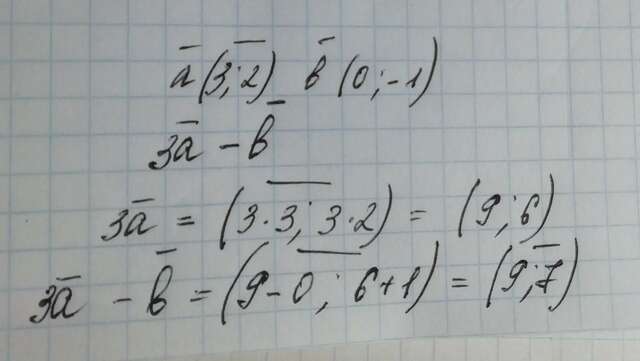 a̅ (3; 2) b̅ (0; -1)
3a̅ - b̅
3a̅ = (3·3; 3·2) = (9; 6)
3a̅ - b̅ = (9-0; 6+1) = (9; 7)